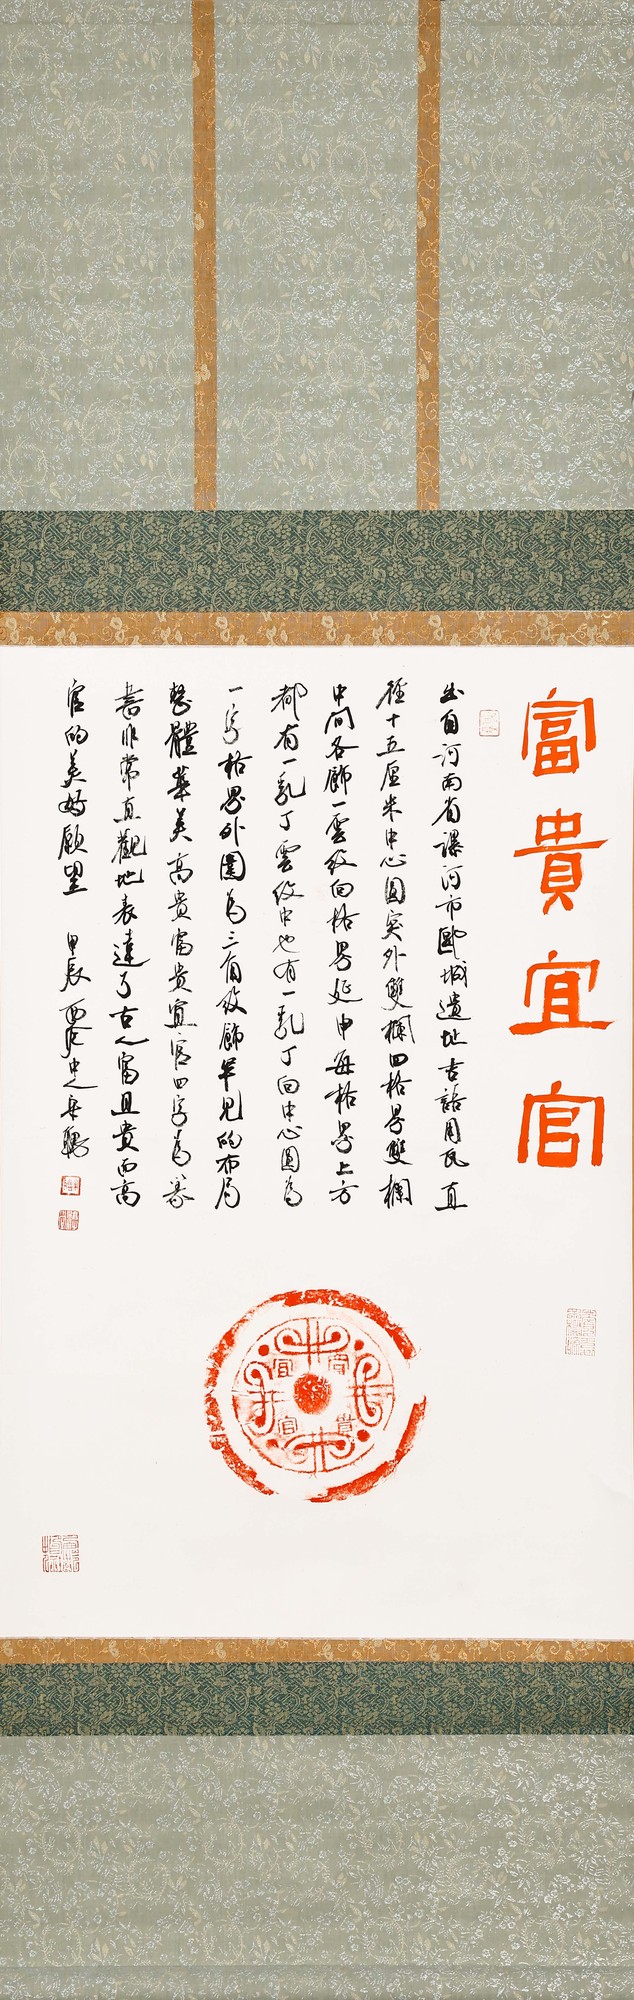 富貴宜官
出自河南省漯河市郾城遺址吉語用瓦直
徑十五厘米中心圓突外雙欄四格界雙欄
中間各飾一雲紋向格界延申每格界上方
都有一乳丁雲紋中也有一乳丁向中心圓為
一字格界外圍為三角紋飾罕見的布局
整體華美高貴富貴宜官四字為篆
書非常直觀地表達了古人富且貴而高
官的美好願望 甲辰
宜 富
官 貴